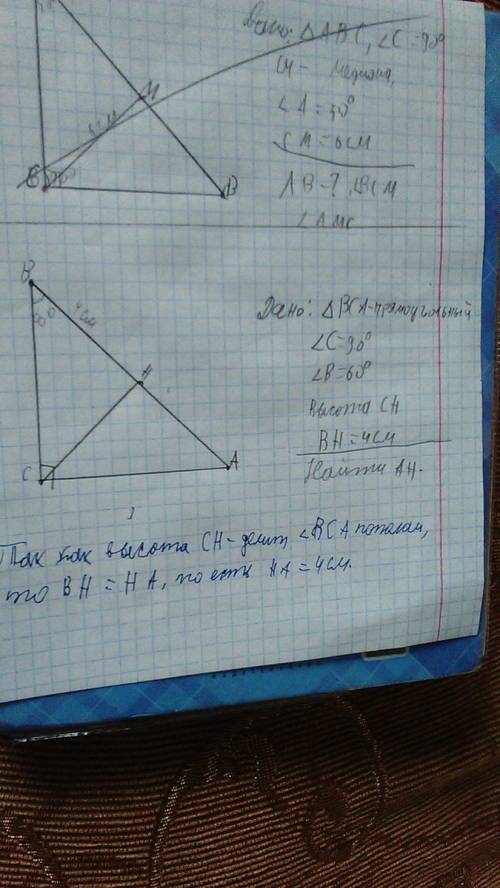 Дано: △ABC, ∠C=90°
CM - медиана,
∠A=30°
CM=6см
AB-?, ∠BCM
∠AMC
M
C
B
B
60°
4см
H
C
A
Дано: △BCA-прямоугольный
∠C=90°
∠B=60°
Высота CH
BH=4см
Найти AH.
Так как высота CH-делит ∠BCA пополам,
то BH=HA, то есть HA=4см.